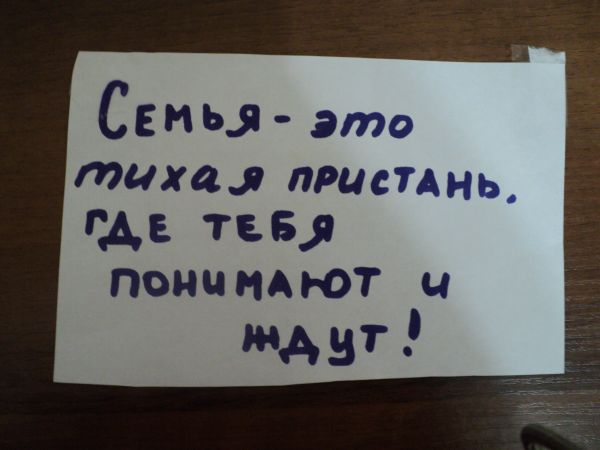 Семья - это
тихая пристань,
где тебя
понимают и
ждут!